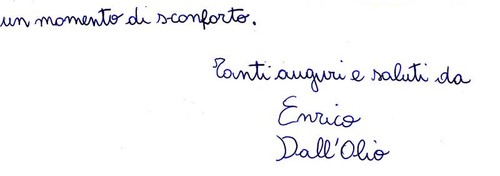 un momento di sconforto.
Tanti auguri e saluti da
Enrico
Dall'Olio